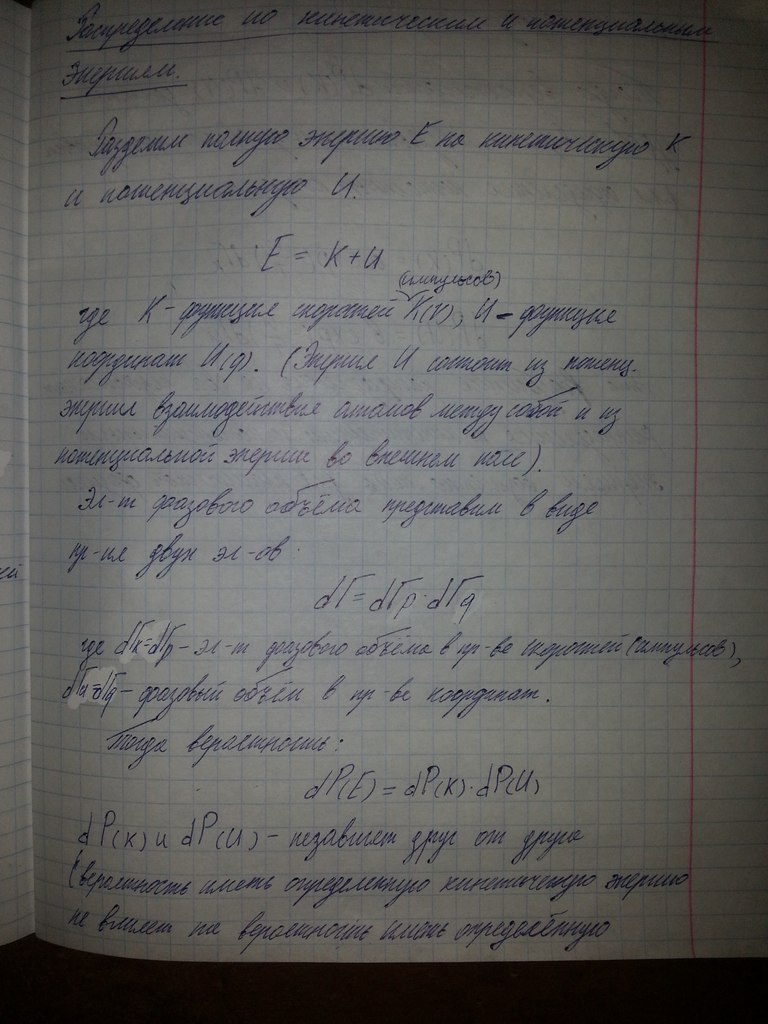 Распределение по кинетическим и потенциальным
энергиям.
Разделим полную энергию E на кинетическую K
и потенциальную U.
E = K+U
(импульсов)
где K - функция скоростей K(V), U - функция
координат U(q). (Энергия U состоит из потенц.
энергии взаимодействия атомов между собой и из
потенциальной энергии во внешнем поле).
Эл-т фазового объёма представим в виде
пр-ия двух эл-ов
dГ = dГp · dГq
где dГк=dГp - эл-т фазового объёма в пр-ве скоростей (импульсов),
dГu=dГq - фазовый объём в пр-ве координат.
Тогда вероятность:
dP(E) = dP(K) · dP(U)
dP(K) и dP(U) - независят друг от друга
(вероятность иметь определенную кинетическую энергию
не влияет на вероятность иметь определённую